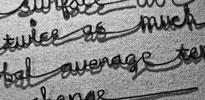 surface
twice as much
bal average te
change